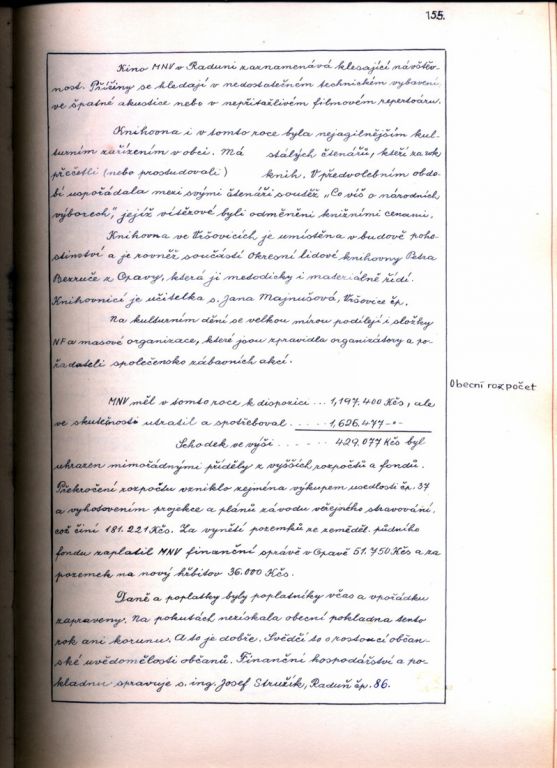 155.
Kino MNV v Raduni zaznamenává klesající návštěv-
nost. Příčiny se hledají v nedostatečném technickém vybavení,
ve špatné akustice nebo v nepřitažlivém filmovém repertoáru.
Knihovna i v tomto roce byla nejagilnějším kul-
turním zařízením v obci. Má stálých čtenářů, kteří za rok
přečetli (nebo prostudovali) knih. V předvolebním obdo-
bí uspořádala mezi svými čtenáři soutěž „Co víš o národních
výborech", jejíž vítězové byli odměněni knižními cenami.
Knihovna ve Vršovicích, je umístěna v budově poho-
stinství a je rovněž součástí Okresní lidové knihovny Petra
Bezruče z Opavy, která ji metodicky i materiálně řídí.
Knihovnicí je učitelka s. Jana Majnušová, Vršovice čp.
Na kulturním dění se velkou mírou podílejí i složky
NF a masové organizace, které jsou zpravidla organizátory a po-
řadateli společensko zábavních akcí.
Obecní rozpočet
MNV měl v tomto roce k dispozici ... 1,197.400 Kčs, ale
ve skutečnosti utratil a spotřeboval ..... 1,626.477 -"-
Schodek ve výši ...... 429.077 Kčs byl
uhrazen mimořádnými příděly z vyšších rozpočtů a fondů.
Překročení rozpočtu vzniklo zejména výkupem usedlosti čp. 37
a vyhotovením projekce a plánů závodu veřejného stravování,
což činí 181.221 Kčs. Za vynětí pozemků ze zeměděl. půdního
fondu zaplatil MNV finanční správě v Opavě 51.750 Kčs a za
pozemek na nový hřbitov 36.000 Kčs.
Daně a poplatky byly poplatníky včas a v pořádku
zapraveny. Na pokutách nezískala obecní pokladna tento
rok ani korunu. A to je dobře. Svědčí to o rostoucí občan-
ské uvědomělosti občanů. Finanční hospodářství a po-
kladnu spravuje s. ing. Josef Stružík, Raduň čp. 86.